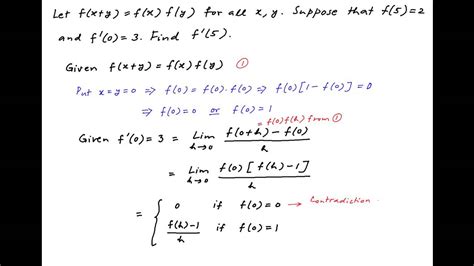 Let f(x+y) = f(x) f(y) for all x, y. Suppose that f(5)=2
and f'(0)=3. Find f'(5).
Given f(x+y) = f(x) f(y) ①
Put x=y=0 ⇒ f(0) = f(0).f(0) ⇒ f(0)[1-f(0)] = 0
⇒ f(0)=0 or f(0)=1
= f(0)f(h) from ①
Given f'(0)=3 = Lim h→0 f(0+h) - f(0) / h
= Lim h→0 f(0) [f(h)-1] / h
= { 0 if f(0)=0 → Contradiction.
f(h)-1 / h if f(0)=1